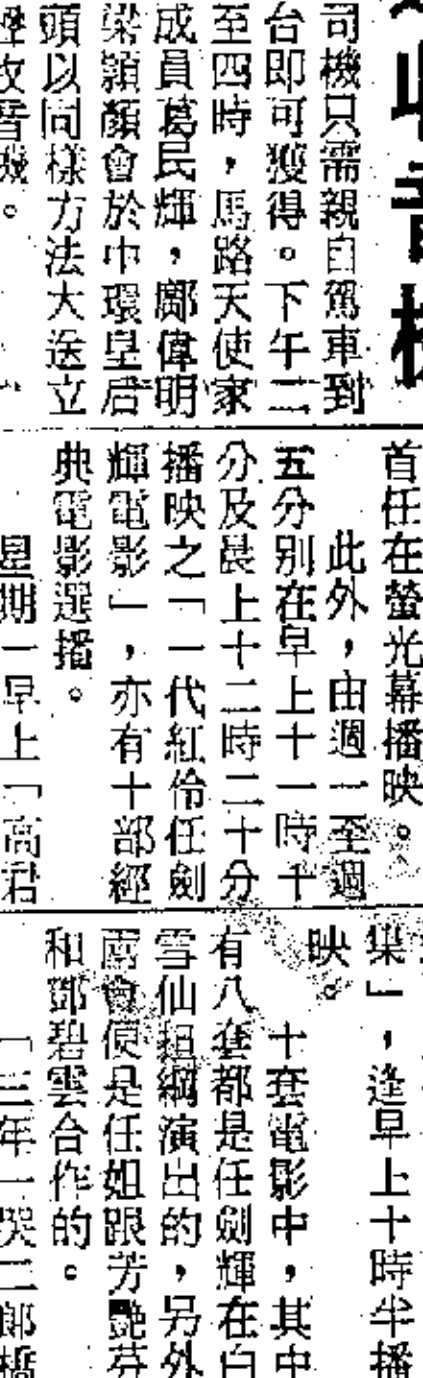 收音機
司機只需親自駕車到
台即可獲得。下午二
至四時，馬路天使家
成員葛民輝，鄺偉明
梁穎顏會於中環皇后
頭以同樣方法大送立
收音機。
首任在螢光幕播映。
此外，由週一至週
五分別在早上十一時十
分及晨上十二時二十分
播映之「一代紅伶任劍
輝電影」，亦有十部經
典電影選播。
星期一早上「高君
集」，逢早上十時半播
映。
十套電影中，其中
有八套都是任劍輝在白
雪仙担綱演出的，另外
兩會便是任姐跟芳艷芬
和鄧碧雲合作的。
「三年一哭二郎橋